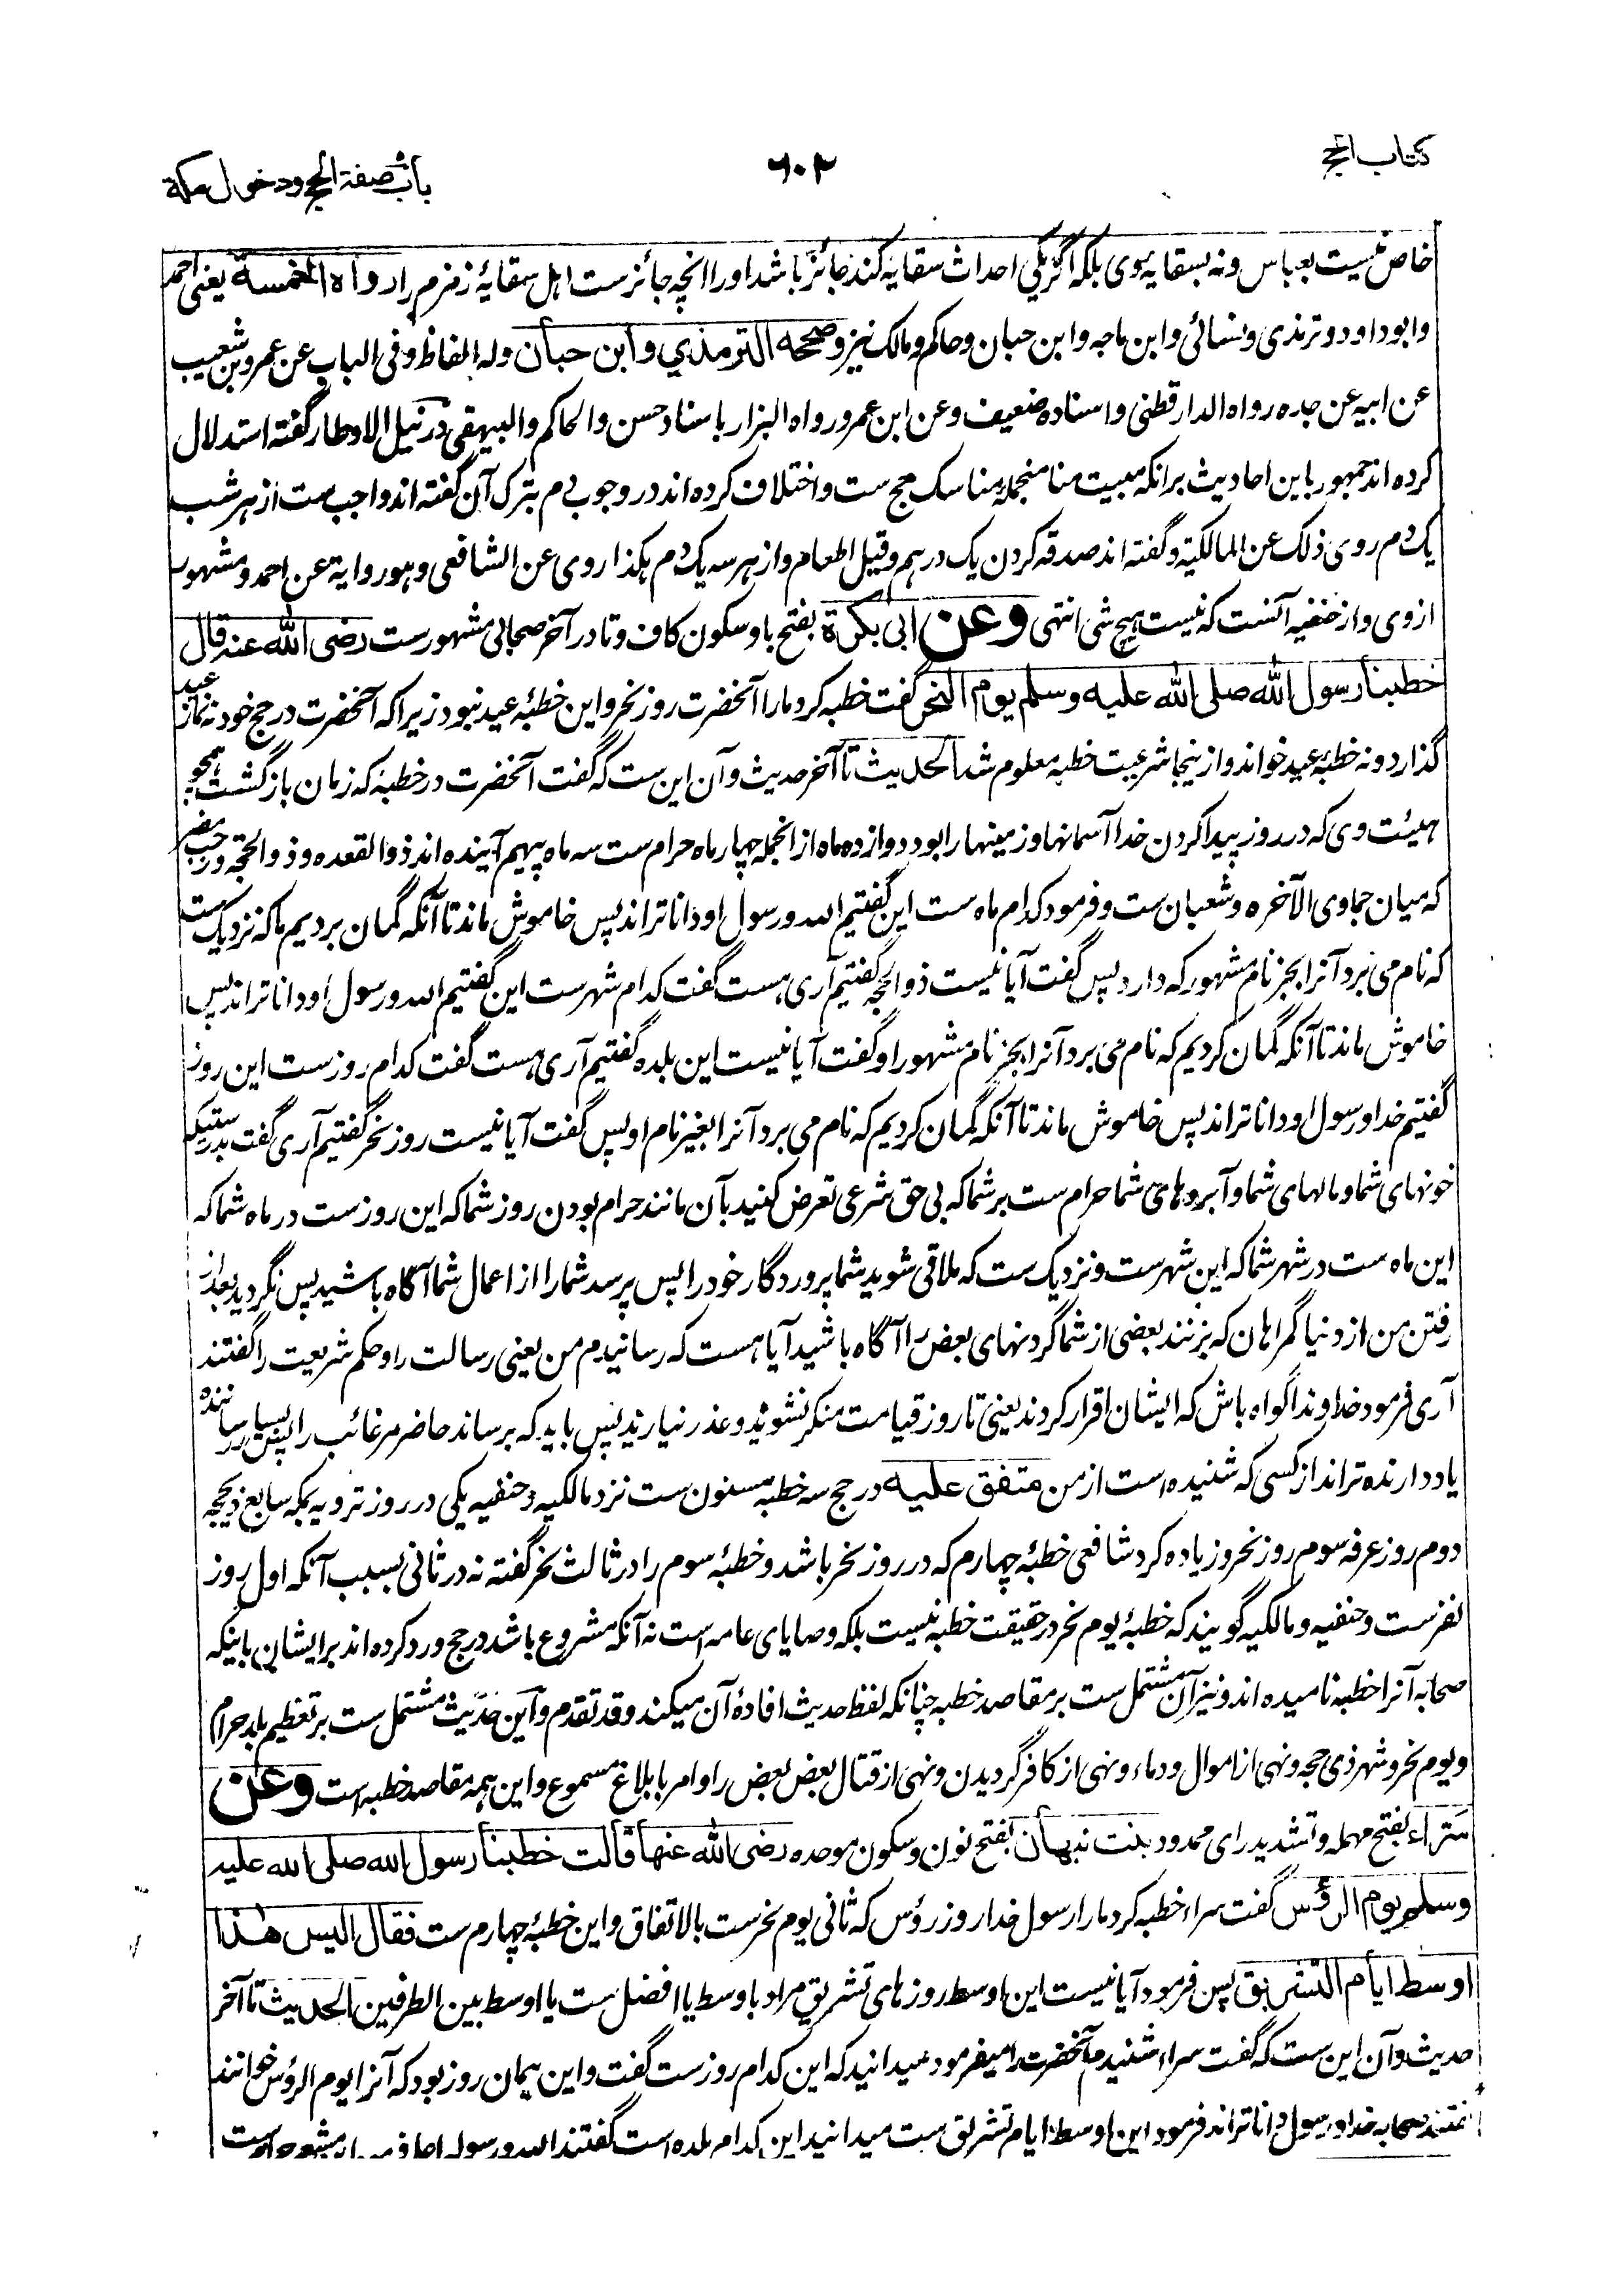 کتاب الحج
۶۰۲
باب صفة الحج ودخول مكة
خاص نیست بعباس و نه بسقایهٔ وی بلکه اگر یکی احداث سقایه کند جائز باشد اورا انچه جائزست اهل سقایهٔ زمزم را رواه الخمسة یعنی احمد
و ابوداود و ترمذی و نسائی و ابن ماجه و ابن حبان و حاکم و مالک نیز وصححه الترمذي وابن حبان وله الفاظ وفی الباب عن عمرو بن شعیب
عن ابیه عن جده رواه الدارقطنی و اسناده ضعیف وعن ابن عمر و رواه البزار باسناد حسن والحاکم والبیهقی در نیل الاوطار گفته استدلال
کرده اند جمهور باین احادیث برانکه مبیت منا منجملهٔ مناسک حج ست و اختلاف کرده اند در وجوب دم بترک آن گفته اند واجب ست از هر شب
یک دم روی ذلک عن المالکیة و گفته اند صدقه کردن یک درهم و قیل اطعام و از هر سه یک دم هکذا روی عن الشافعی وهو روایة عن احمد و مشهور
ازوی و از حنفیه آنست که نیست هیچ شی انتهی وعن ابی بکرة بفتح با و سکون کاف و تا در آخر صحابی مشهورست رضی الله عنه قال
خطبنا رسول الله صلی الله علیه وسلم یوم النحر گفت خطبه کرد مارا آنحضرت روز نحر و این خطبهٔ عید نبود زیرا که آنحضرت در حج خود نه نماز عید
گذارد و نه خطبهٔ عید خواند و ازینجا شرعیت خطبه معلوم شد الحدیث تا آخر حدیث و آن این ست که گفت آنحضرت در خطبه که زمان بازگشت همچو
هیئت وی که در روز پیدا کردن خدا آسمانها و زمینها را بود دوازده ماه از انجمله چهار ماه حرام ست سه ماه پیهم آینده اند ذو القعده و ذو الحجه و رجب مضر
که میان جمادی الآخره و شعبان ست و فرمود کدام ماه ست این گفتیم الله و رسول او داناتر اند پس خاموش ماند تا آنکه گمان بردیم ما که نزدیک ست
که نام می برد آنرا بجز نام مشهور که دارد پس گفت آیا نیست ذو الحجه گفتیم آری هست گفت کدام شهرست این گفتیم الله و رسول او داناتر اند پس
خاموش ماند تا آنکه گمان کردیم که نام می برد آنرا بجز نام مشهور او گفت آیا نیست این بلده گفتیم آری هست گفت کدام روزست این روز
گفتیم خدا و رسول او داناتر اند پس خاموش ماند تا آنکه گمان کردیم که نام می برد آنرا بغیر نام او پس گفت آیا نیست روز نحر گفتیم آری گفت بدرستیکه
خونهای شما و مالهای شما و آبروهای شما حرام ست بر شما که بی حق شرعی تعرض کنید بآن مانند حرام بودن روز شما که این روزست در ماه شما که
این ماه ست در شهر شما که این شهرست و نزدیک ست که ملاقی شوید شما پروردگار خود را پس پرسد شما را از اعمال شما آگاه باشید پس نگردید بعد از
رفتن من از دنیا گمراهان که بزنند بعضی از شما گردنهای بعض را آگاه باشید آیا هست که رسانیدم من یعنی رسالت را و حکم شریعت را گفتند
آری فرمود خداوندا گواه باش که ایشان اقرار کردند یعنی تا روز قیامت منکر نشوند و عذر نیارند پس باید که برساند حاضر مر غائب را پس بسیار رسانیده
یاددارنده تر اند از کسی که شنیده است از من متفق علیه در حج سه خطبه مسنون ست نزد مالکیه و حنفیه یکی در روز ترویه بمکه سابع ذیحجه
دوم روز عرفه سوم روز نحر و زیاده کرد شافعی خطبهٔ چهارم که در روز نحر باشد و خطبهٔ سوم را در ثالث نحر گفته نه در ثانی بسبب آنکه اول روز
نفرست و حنفیه و مالکیه گویند که خطبهٔ یوم نحر در حقیقت خطبه نیست بلکه وصایای عامه است نه آنکه مشروع باشد در حج و رد کرده اند بر ایشان باینکه
صحابه آنرا خطبه نامیده اند و نیز آن مشتمل ست بر مقاصد خطبه چنانکه لفظ حدیث افادهٔ آن میکند وقد تقدم و این حدیث مشتمل ست بر تعظیم بلد حرام
و یوم نحر و شهر ذی حجه و نهی از اموال و دماء و نهی از کافر گردیدن و نهی از قتال بعض بعض را و امر بابلاغ مسموع و این همه مقاصد خطبه است وعن
سَرّاء بفتح مهمله و تشدید رای ممدود بنت نبهان بفتح نون و سکون موحده رضی الله عنها قالت خطبنا رسول الله صلی الله علیه
وسلم یوم الرؤس گفت سراء خطبه کرد مارا رسول خدا روز رؤس که ثانی یوم نحرست بالاتفاق و این خطبهٔ چهارم ست فقال الیس هذا
اوسط ایام التشریق پس فرمود آیا نیست این اوسط روزهای تشریق مراد باوسط یا افضل ست یا اوسط بین الطرفین الحدیث تا آخر
حدیث و آن این ست که گفت سراء شنیدم آنحضرت را میفرمود میدانید که این کدام روزست گفت و این همان روز بود که آنرا یوم الرؤس خوانند
گفتند صحابه خدا و رسول داناتر اند فرمود این اوسط ایام تشریق ست میدانید این کدام بلده است گفتند الله و رسوله اعلم